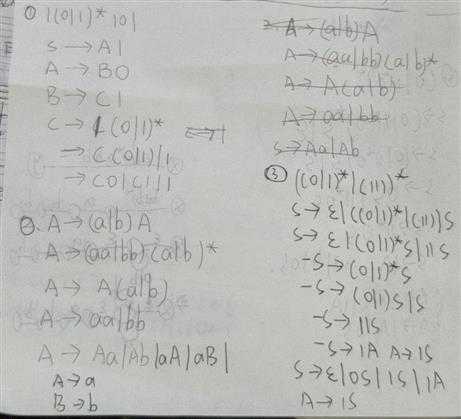 ① 1(0|1)* 101
S → A1
A → B0
B → C1
C → 1(0|1)*
→ C(0|1)|1
→ C0|C1|1
②. A → (a|b)A
A → (aa|bb)(a|b)*
A → A(a|b)
A → aa|bb
A → Aa|Ab|aA|aB|
A → a
B → b
2. A → (a|b)A
A → (aa|bb)(a|b)*
A → A(a|b)
A → aa|bb
S → Aa|Ab
③ ((0|1)*|(11))*
S → ε|((0|1)*|(11))S
S → ε|(0|1)*S|11S
-S → (0|1)*S
-S → (0|1)S|S
-S → 11S
-S → 1A A → 1S
S → ε|0S|1S|1A
A → 1S